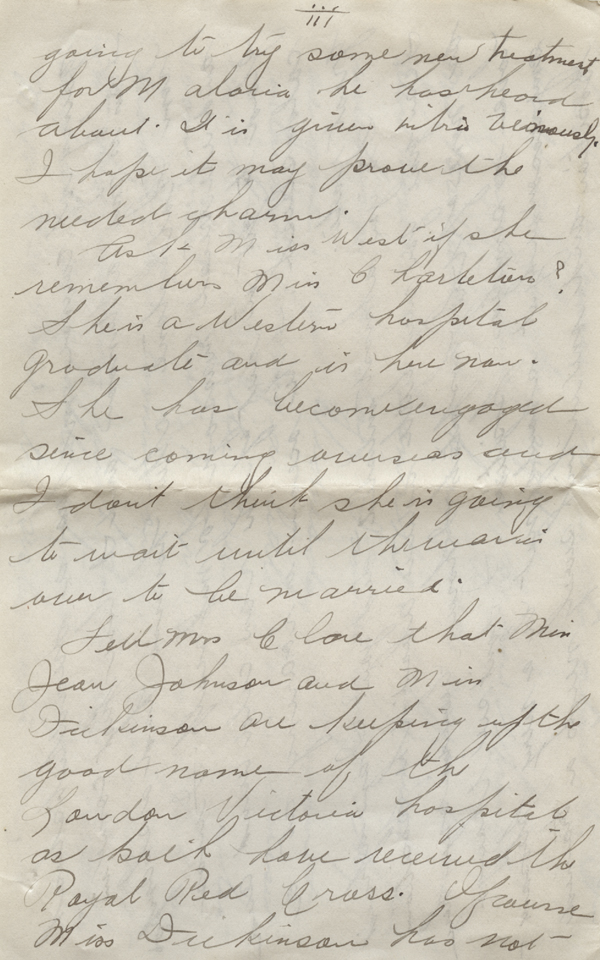 iii
going to try some new treatment
for Malaria he has heard
about. It is given intra veinously.
I hope it may prove the
needed charm.
Ask Miss West if she
remembers Miss Charleton?
She is a Western hospital
graduate and is here now.
She has become engaged
since coming overseas and
I don't think she is going
to wait until the war is
over to be married.
Tell Mrs Clare that Miss
Jean Johnson and Miss
Dickinson are keeping up the
good name of th
London Victoria hospital
as both have received th
Royal Red Cross. Of course
Miss Dickinson has not